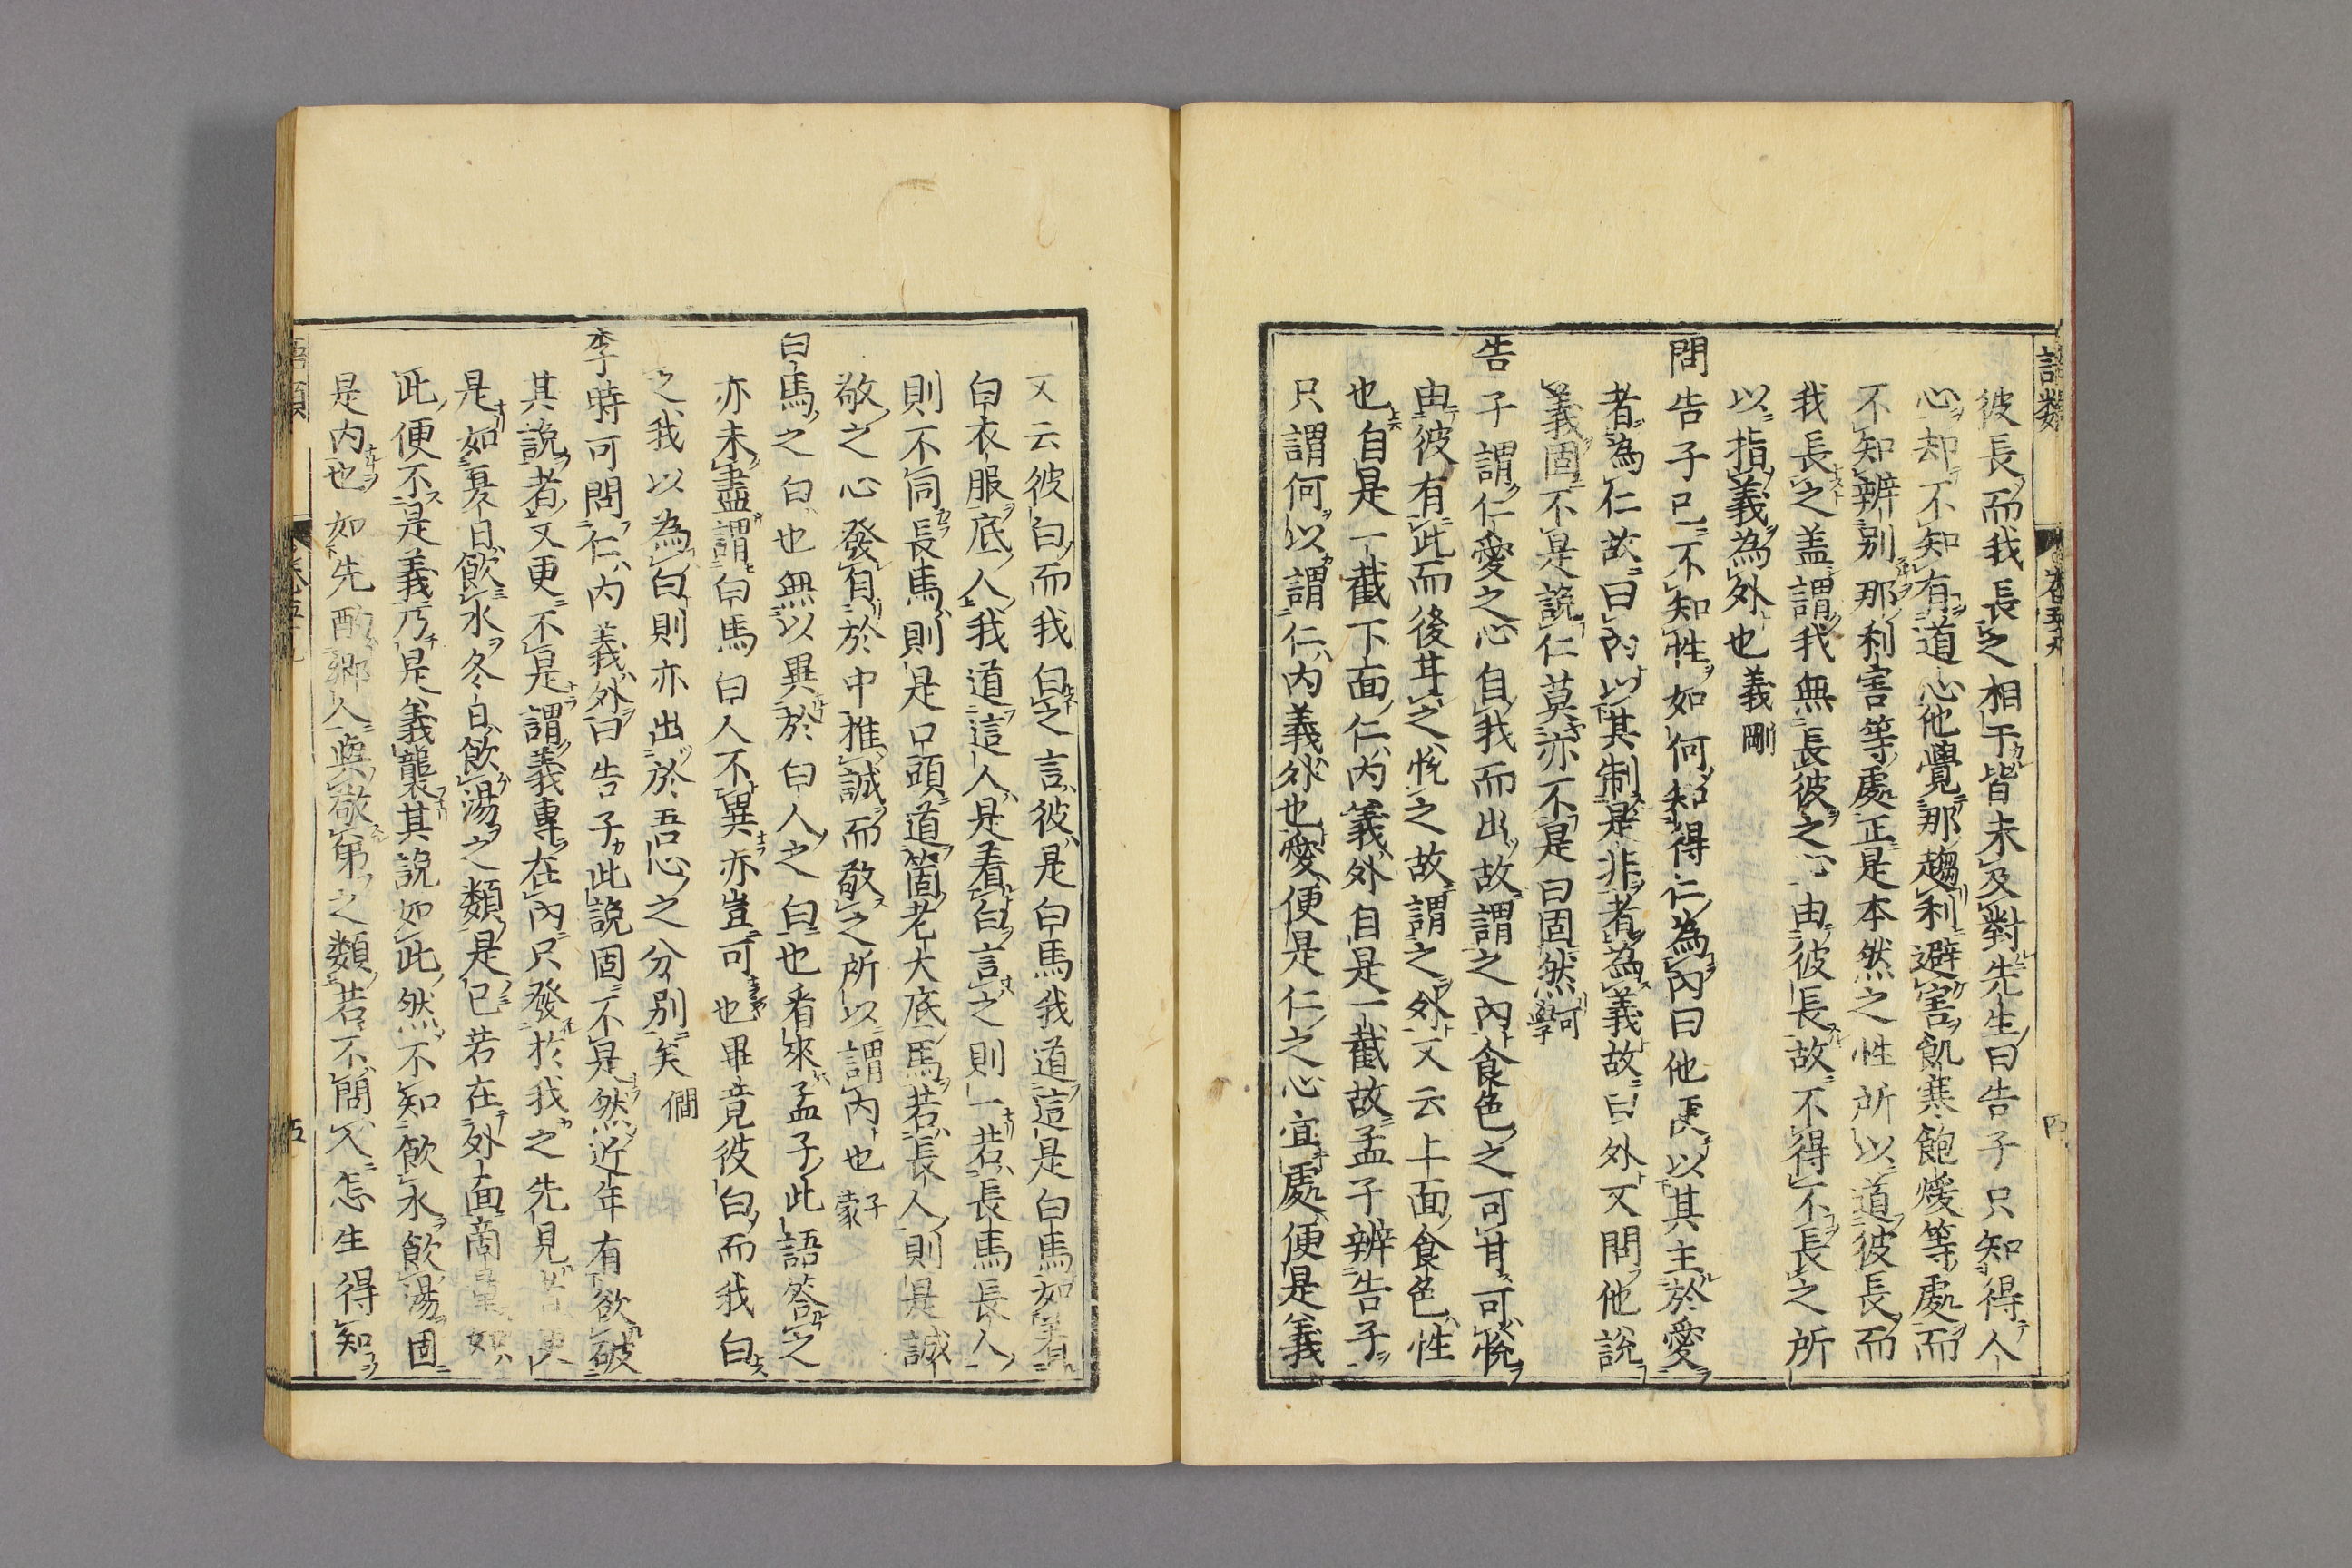 語類
卷五十九
四
彼長而我長之相干皆未及對先生曰告子只知得人
心却不知有道心他覺那趨利避害飢寒飽煖等處而
不知辨別那利害等處正是本然之性所以道彼長而
我長之盖謂我無長彼之心由彼長故不得不長之所
以指義為外也義剛
問告子已不知性如何知得仁為內曰他便以其主於愛
者為仁故曰內以其制是非者為義故曰外又問他說
義固不是說仁莫亦不是曰固然可學
告子謂仁愛之心自我而出故謂之內食色之可甘可悅
由彼有此而後甘之悅之故謂之外又云上面食色性
也自是一截下面仁內義外自是一截故孟子辨告子
只謂何以謂仁內義外也愛便是仁之心宜處便是義
又云彼白而我白之言彼是白馬我道這是白馬如著
白衣服底人我道這人是看白言之則一若長馬長人
則不同長馬則是口頭道箇老大底馬若長人則是誠
敬之心發自於中推誠而敬之所以謂內也子蒙
白馬之白也無以異於白人之白也看來孟子此語答之
亦未盡謂白馬白人不異亦豈可也畢竟彼白而我白
之我以為白則亦出於吾心之分別矣僩
李時可問仁內義外曰告子此說固不是然近年有欲破
其說者又更不是謂義專在內只發於我之先見者便
是如夏日飲水冬日飲湯之類是已若在外面商量如
此便不是義乃是義襲其說如此然不知飲水飲湯固
是內也如先酌鄉人與敬弟之類若不問人怎生得知
語類
卷五十九
五